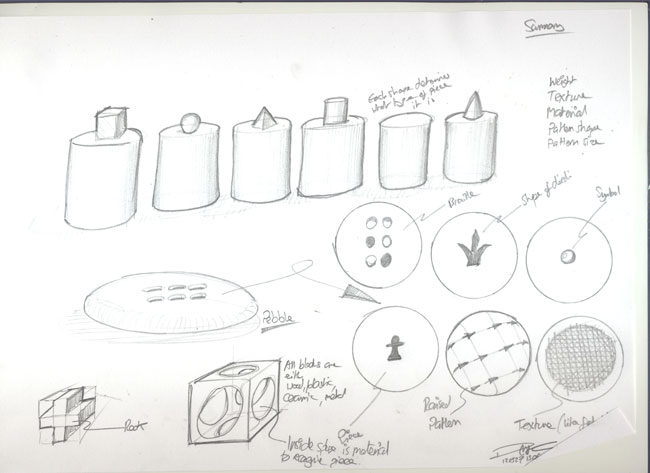 Summary
Each shape determines
what type of piece
it is
Weight
Texture
Material
Pattern shape
Pattern size
Braille
Shape of
Symbol
Pebble
All blocks are
either
wood, plastic,
ceramic, metal
Rook
Inside shape is material
to recognise piece
piece
Raised
Pattern
Texture /